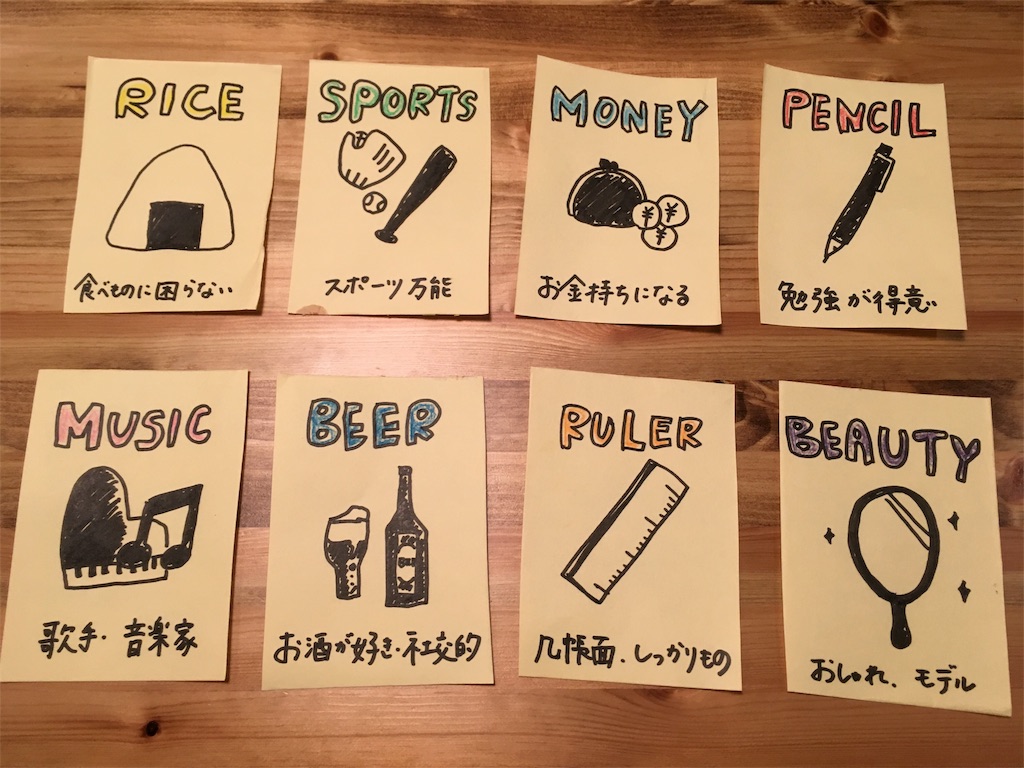 RICE
食べものに困らない
SPORTS
スポーツ万能
MONEY
¥
¥
¥
お金持ちになる
PENCIL
勉強が得意
MUSIC
歌手・音楽家
BEER
お酒が好き・社交的
RULER
几帳面、しっかりもの
BEAUTY
おしゃれ、モデル